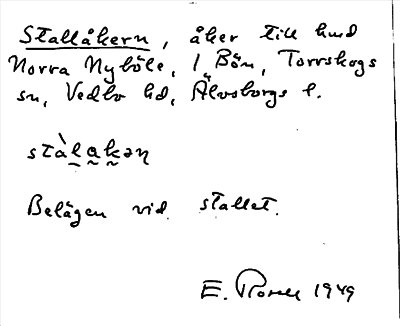 Stallåkern, åker till hmd
Norra Nyböle, 1 Bön, Torrskogs
sn, Vedbo hd, Älvsborgs l.
stàlakən
Belägen vid stallet.
E. 1949